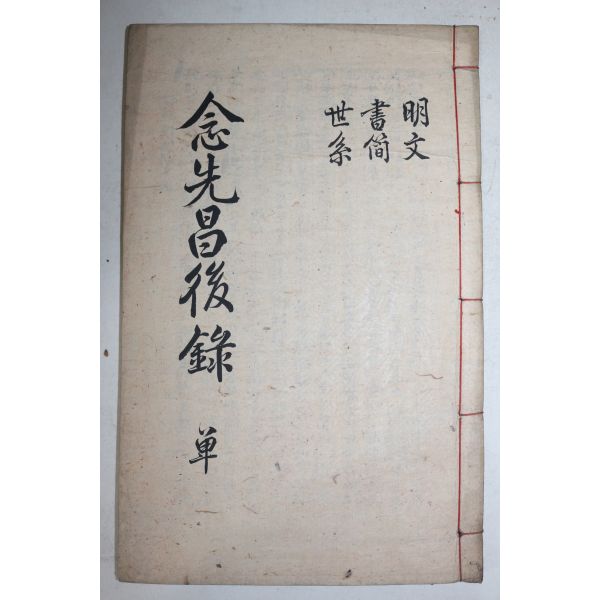 明文
書简
世系
念先昌後錄 单